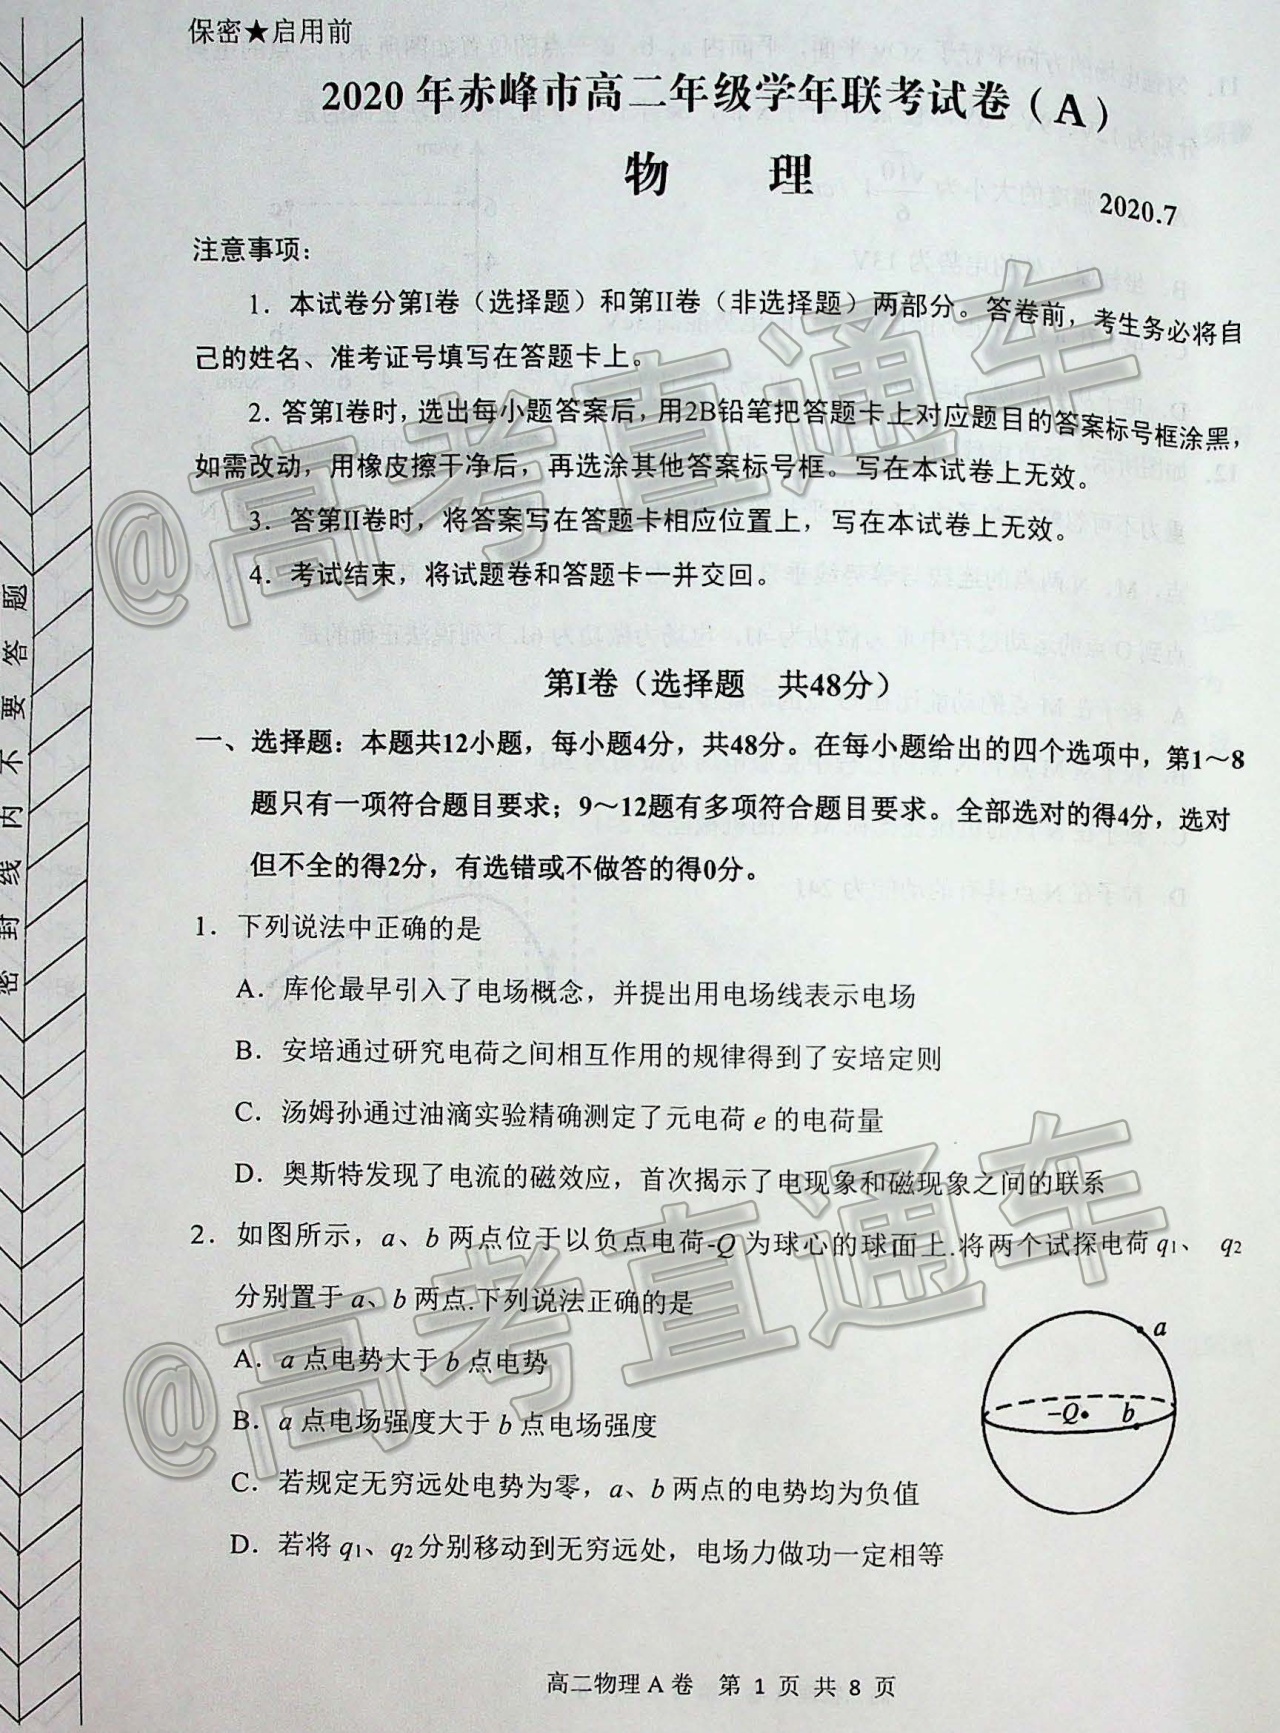 保密★启用前
2020年赤峰市高二年级学年联考试卷（A）
物 理
2020.7
注意事项：
1．本试卷分第I卷（选择题）和第II卷（非选择题）两部分。答卷前，考生务必将自
己的姓名、准考证号填写在答题卡上。
2．答第I卷时，选出每小题答案后，用2B铅笔把答题卡上对应题目的答案标号框涂黑，
如需改动，用橡皮擦干净后，再选涂其他答案标号框。写在本试卷上无效。
3．答第II卷时，将答案写在答题卡相应位置上，写在本试卷上无效。
4．考试结束，将试题卷和答题卡一并交回。
第I卷（选择题 共48分）
一、选择题：本题共12小题，每小题4分，共48分。在每小题给出的四个选项中，第1～8
题只有一项符合题目要求；9～12题有多项符合题目要求。全部选对的得4分，选对
但不全的得2分，有选错或不做答的得0分。
1．下列说法中正确的是
A．库伦最早引入了电场概念，并提出用电场线表示电场
B．安培通过研究电荷之间相互作用的规律得到了安培定则
C．汤姆孙通过油滴实验精确测定了元电荷 e 的电荷量
D．奥斯特发现了电流的磁效应，首次揭示了电现象和磁现象之间的联系
2．如图所示，a、b 两点位于以负点电荷-Q 为球心的球面上.将两个试探电荷 q1、 q2
分别置于 a、b 两点.下列说法正确的是
A．a 点电势大于 b 点电势
B．a 点电场强度大于 b 点电场强度
C．若规定无穷远处电势为零，a、b 两点的电势均为负值
D．若将 q1、q2分别移动到无穷远处，电场力做功一定相等
a
-Q
b
高二物理 A 卷 第 1 页 共 8 页
密 封 线 内 不 要 答 题
@高考直通车
@高考直通车